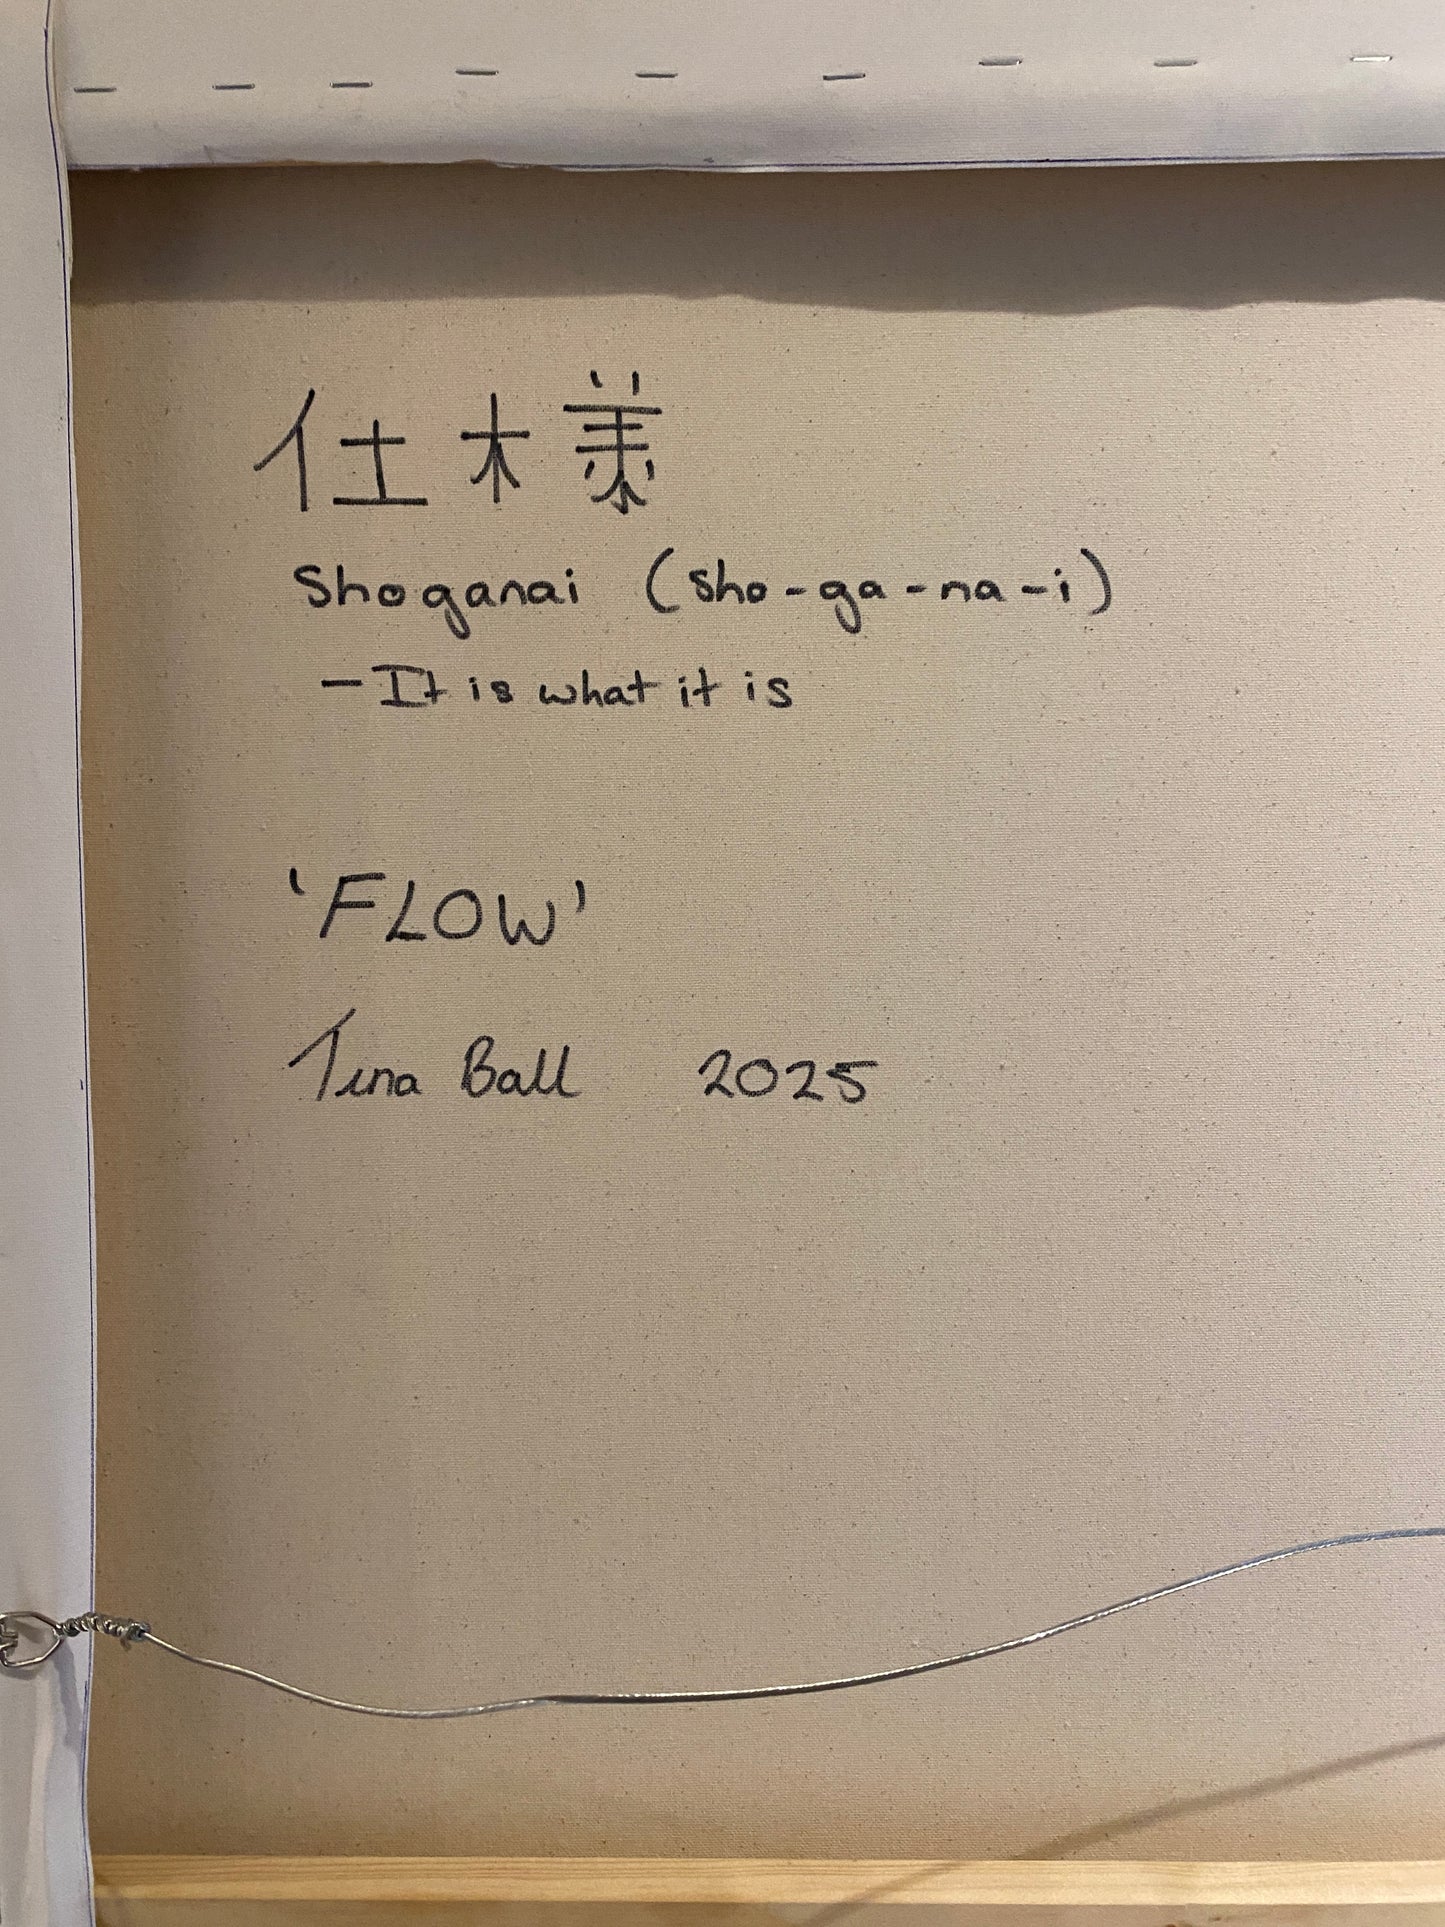 仕木羕
Shoganai (sho-ga-na-i)
- It is what it is
'FLOW'
Tina Ball 2025